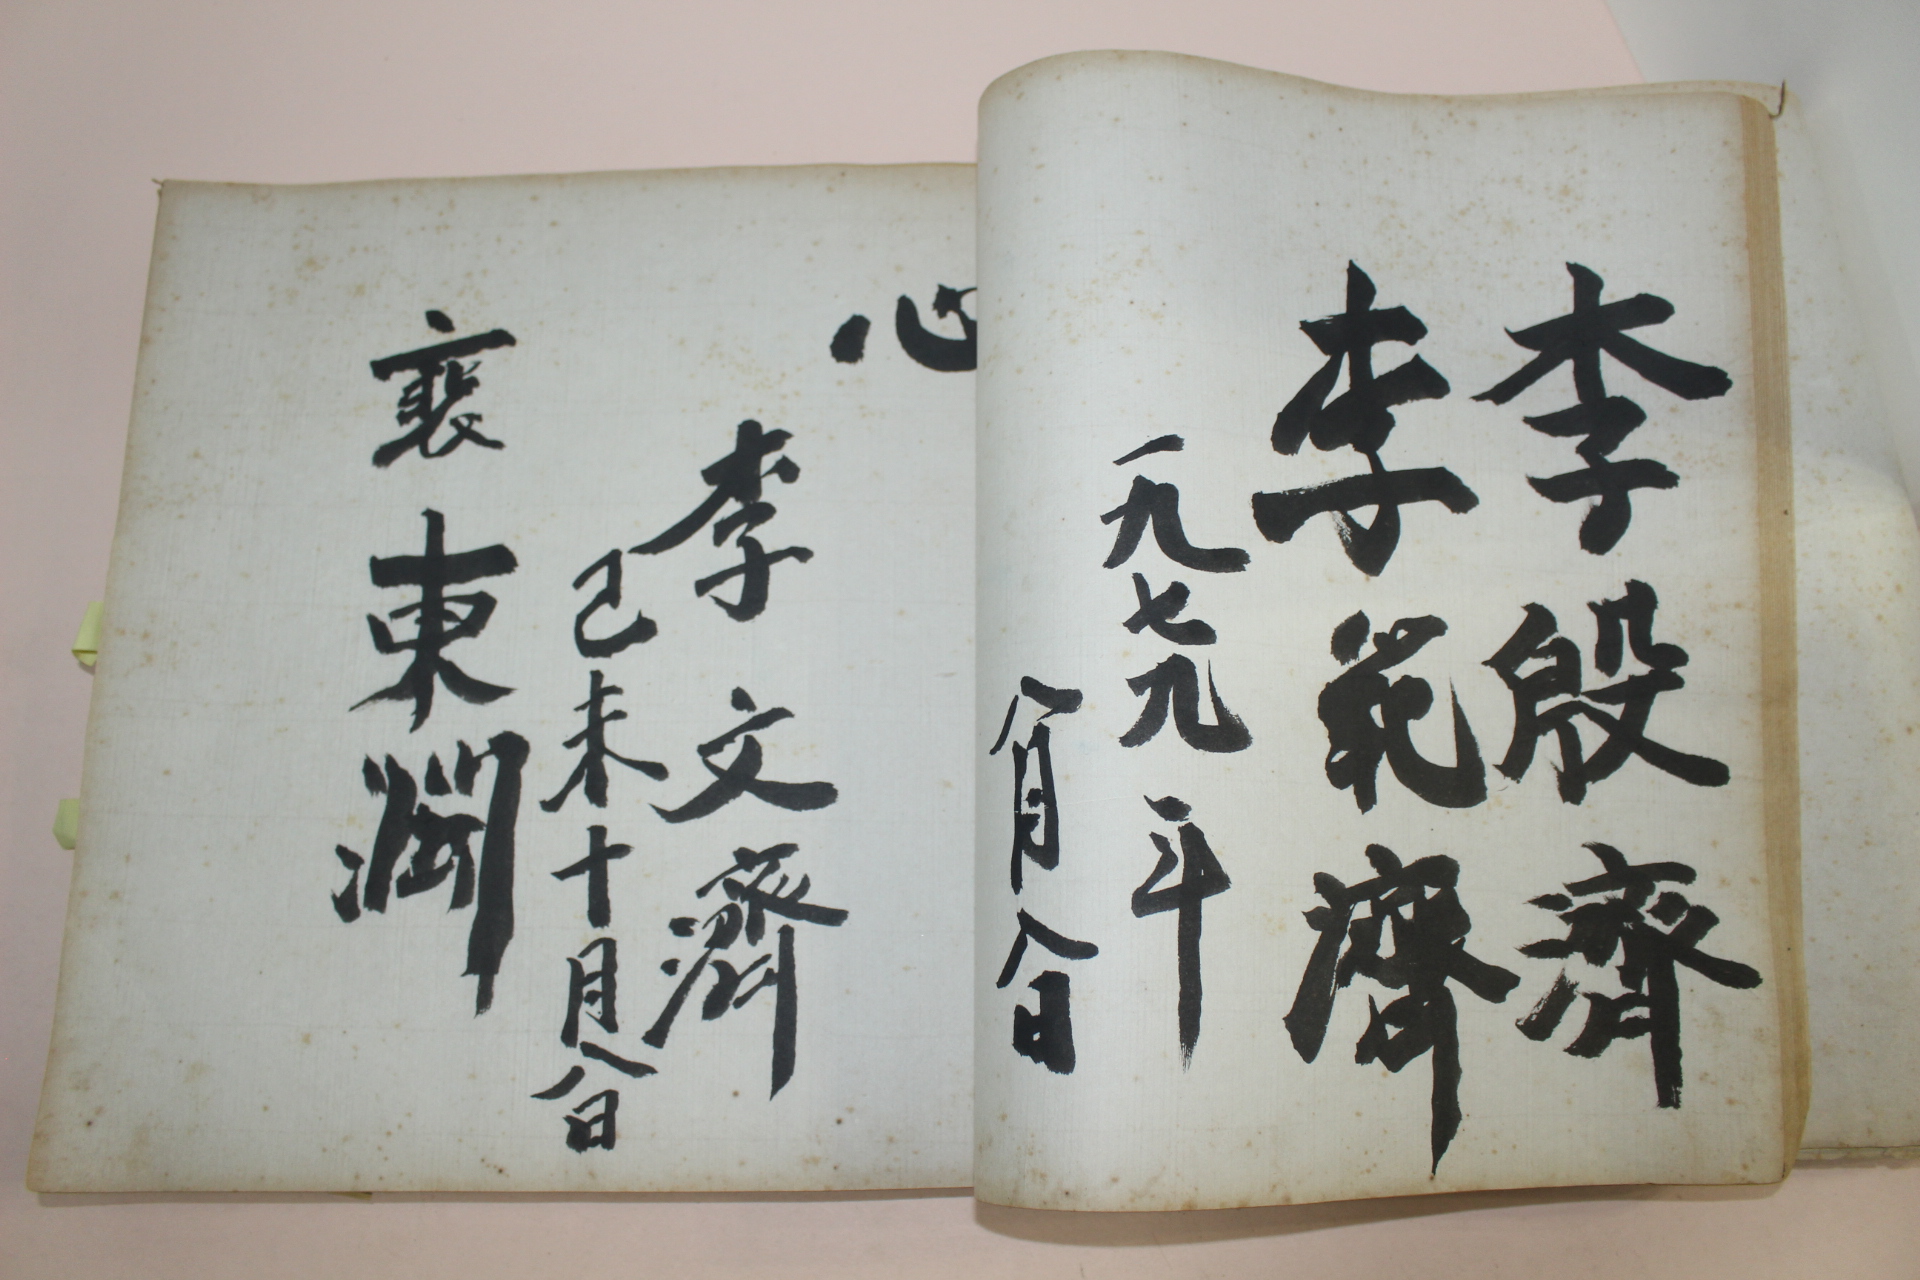 李殷濟
李範濟
一九七九年
八月八日
心
李文濟
己未十月八日
裵東潤